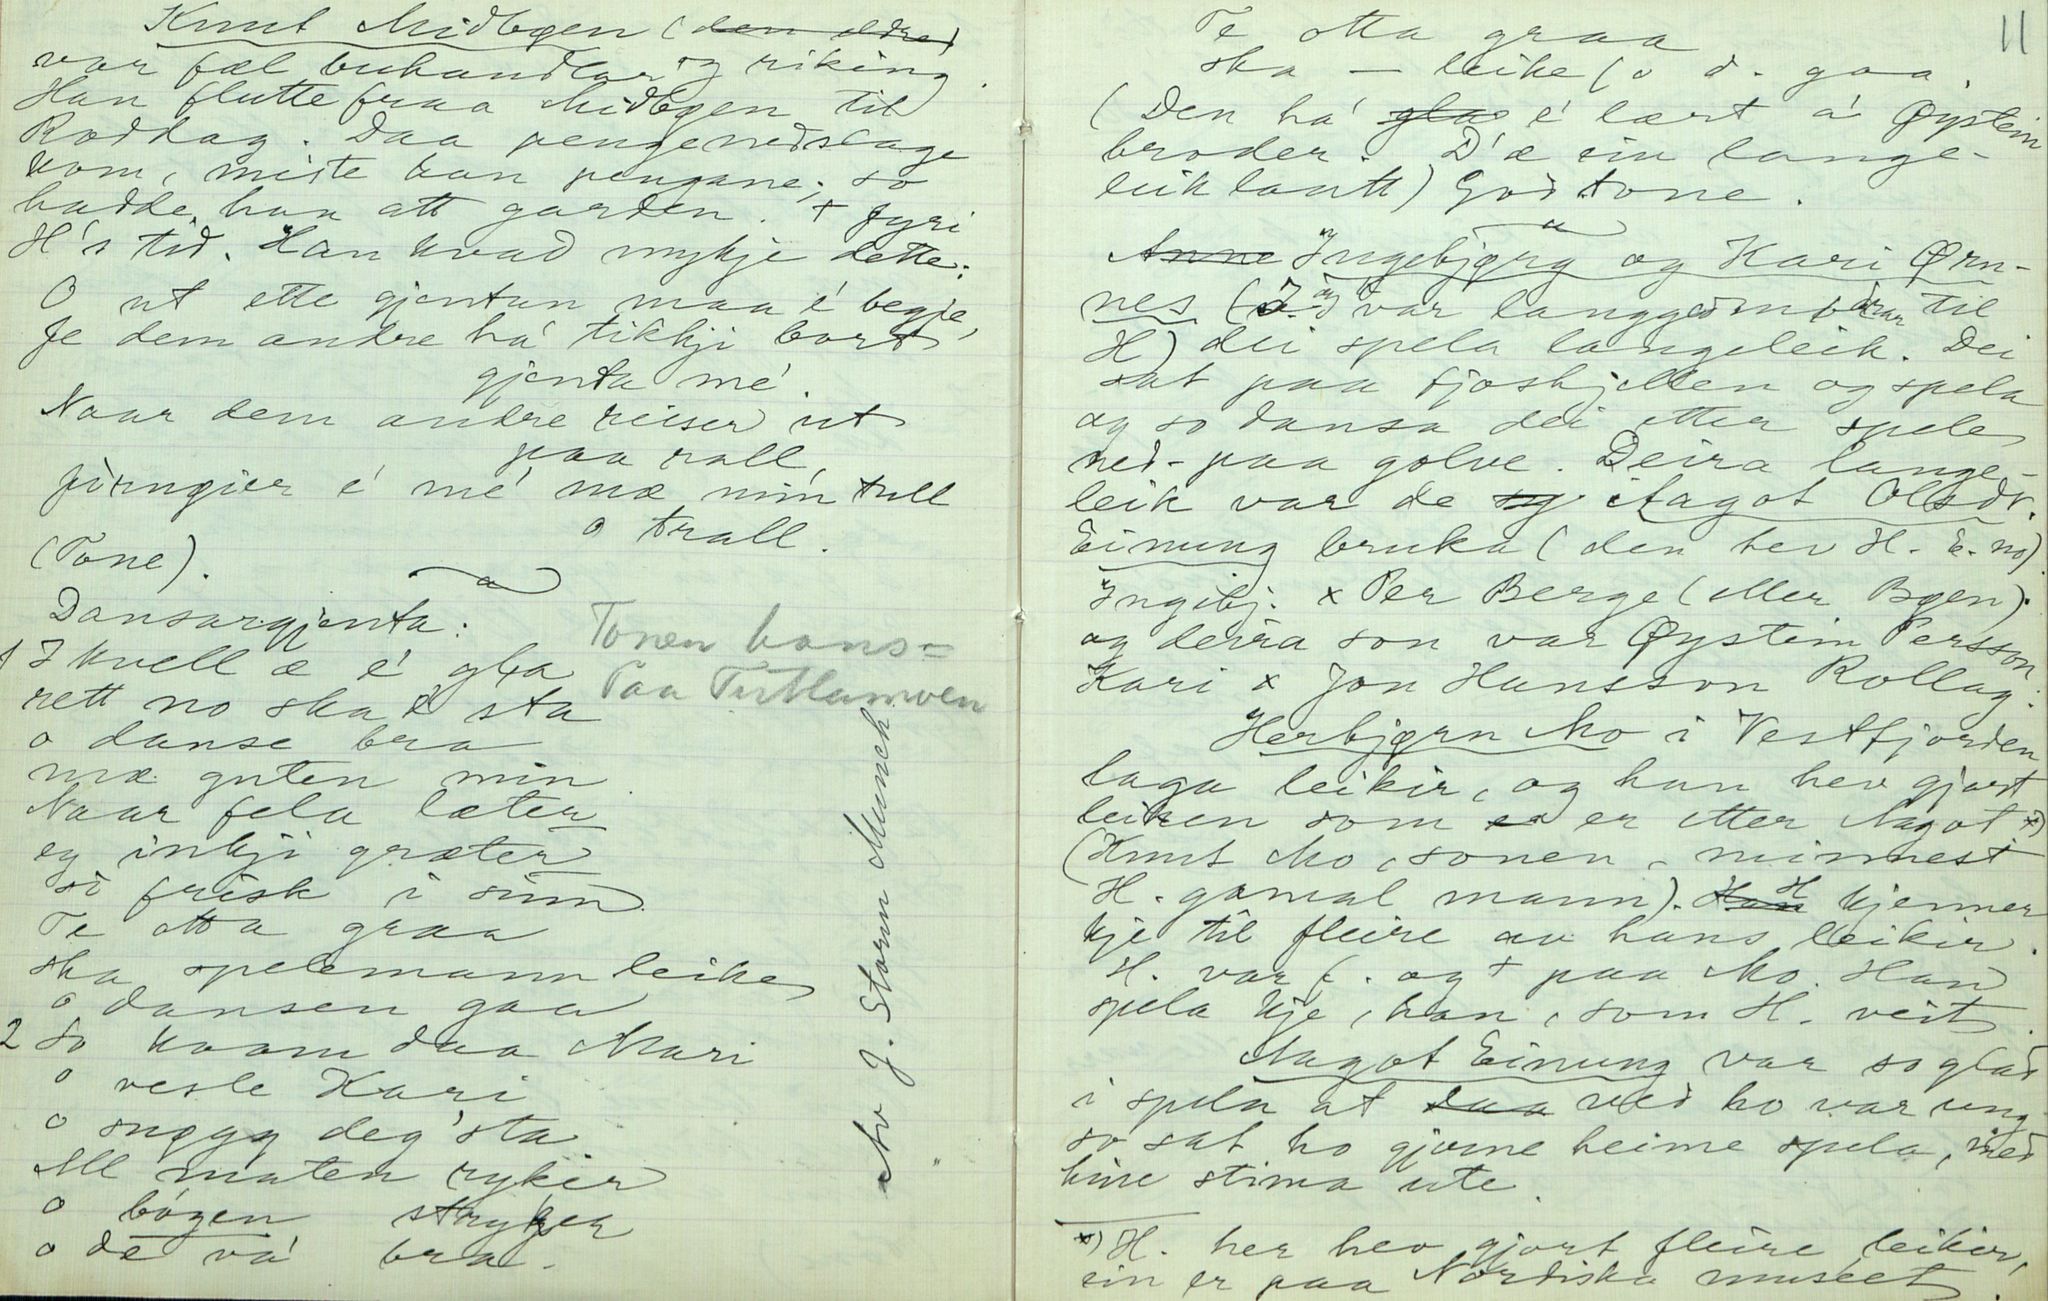 Knut Midbøen (den eldre)
var fæl buhandlar og riking.
Han flutte fraa Midbøen til
Roddag. Daa pengenedslage
kom, miste han pengane, so
hadde han att garden. + fyri
H's tid. Han kvad mykje dette:
O ut ette gjentun maa é begje,
Je dem andre há tikji bort
gjenta mé.
Naar dem andre reiser ut
paa rall,
firnøier é mé mæ min tull
o trall.
(Tone).
Dansargjenta:
1 I kvell æ é gla
rett no ska é sta
o danse bra
mæ guten min
Naar fela læter
eg inkji græter
so frisk i sinn
Te otta graa
ska spelemann leike
o dansen gaa
2 So kaam daa Mari
o vesle Kari
o snøgg deg'sta
All maten rykir
o bógen stryker
o de vá bra.
Tonen hans =
Paa
Av J. Storm Munch
11
Te otta graa
ska — leike (o d. gaa.
(Den há glas é lært á Øystein
broder. D'æ ein lange-
leiklaatt) God tone.
Anne Ingebjørg og Kari Ørn-
nes (var langgodm til
H) dei spela langeleik. Dei
sat paa fjoshjellen og spela
og so dansa dei etter spele
ned- paa golve. Deira lange-
leik var de og Aagot Olsdr.
Einung bruka (den hev H. E. no)
Ingibj. x Per Berge (eller Bøen).
og deira son var Øystein Persson
Kari x Jon Hansson Rollag.
Herbjørn Mo i Vestfjorden
laga leikir, og han hev gjort
leiken som er etter Aagot x)
(Knut Mo, sonen, minnest
H. gamal mann). Han H kjenner
kje til fleire av hans leikir.
H. var f. og + paa Mo. Han
spela kje, han, som H. veit.
Aagot Einung var so glad
i spela at daa ved ho var ung
so sat ho gjerne heime spela, med
hine stima ute.
x) H. her hev gjort fleire leikir,
ein er paa Nordiska museet.